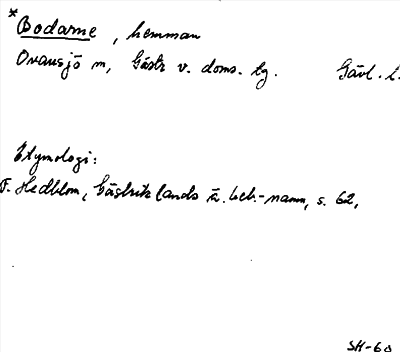 * Bodarne, hemman
Ovansjö sn, Gästr v. doms. tg. Gävl. l.
Etymologi:
F. Hedblom, Gästriklands ä. beb.-namn, s. 62,
SH-60